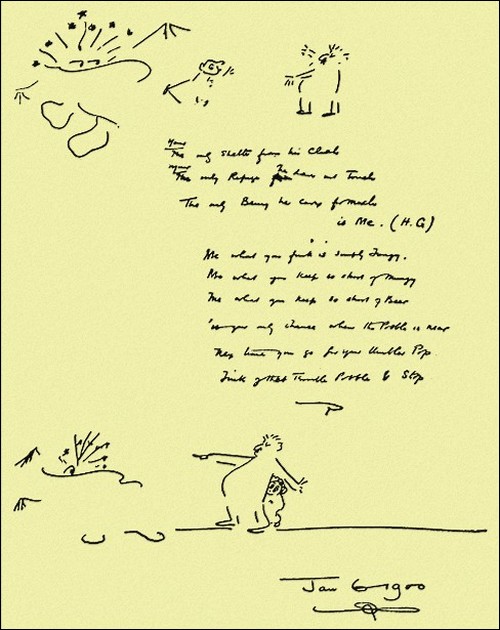 Your
The only Shelter from his Clutch
your
The only Refuge he dares not Touch
The only Being he cares for Much
is Me. (H.G)
Me what you fink is simply Fungy.
Me what you keep so short of Mungy
Me what you keep so short of Beer
'is your only chance when the Pobble is near
Next time you go for your Umbler Pop
Fink of that Terrible Pobble & Stop
Jan 6 1900